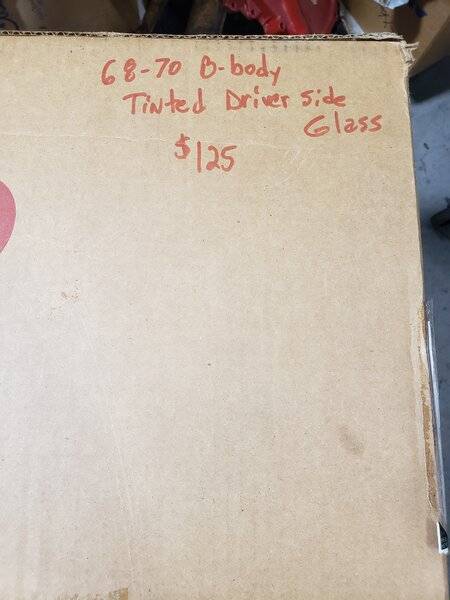 68-70 B-body
Tinted Driver Side
Glass
$125